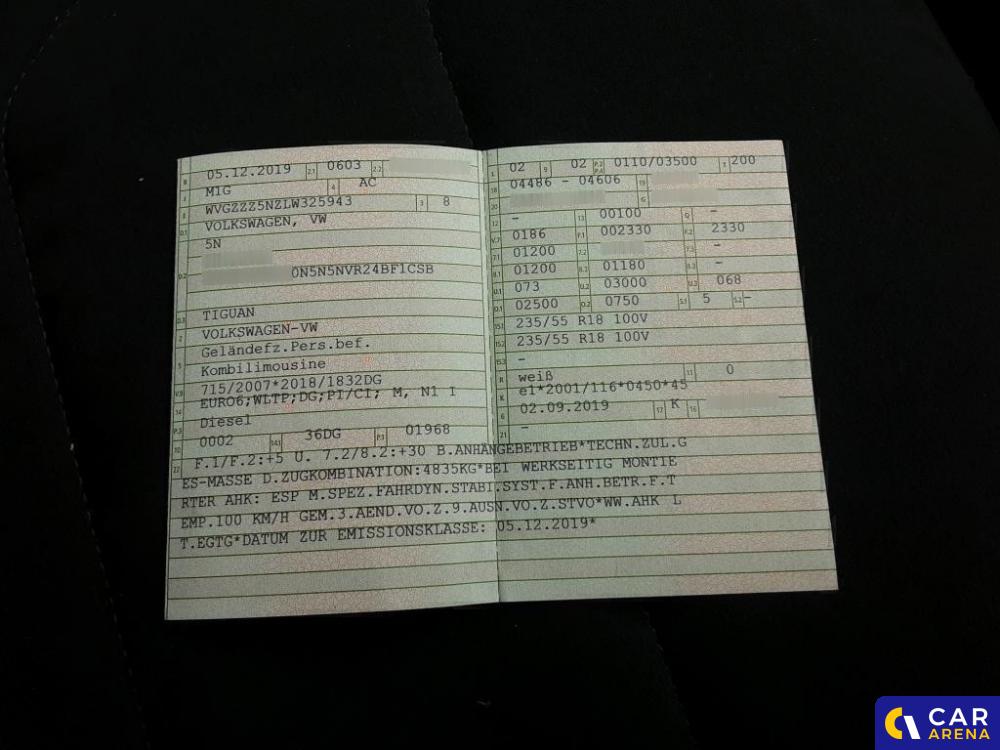 B 05.12.2019 2.1 0603 2.2
J M1G 4 AC
E WVGZZZ5NZLW325943 3 8
D.1 VOLKSWAGEN, VW
5N
D.2 0N5N5NVR24BF1CSB
D.3 TIGUAN
2 VOLKSWAGEN-VW
Geländefz.Pers.bef.
5 Kombilimousine
V.9 715/2007*2018/1832DG
14 EURO6;WLTP;DG;PI/CI; M, N1 I
P.3 Diesel
10 0002 14.1 36DG P.1 01968
L 02 9 02 P.2 P.4 0110/03500 T 200
18 04486 - 04606 19
20 G
12 - 13 00100 Q -
V.7 0186 F.1 002330 F.2 2330
7.1 01200 7.2 7.3 -
8.1 01200 8.2 01180 8.3 -
U.1 073 U.2 03000 U.3 068
O.1 02500 O.2 0750 S.1 5 S.2 -
15.1 235/55 R18 100V
15.2 235/55 R18 100V
15.3 -
R weiß 11 0
K e1*2001/116*0450*45
6 02.09.2019 17 K 16
21 -
22 F.1/F.2:+5 U. 7.2/8.2:+30 B.ANHÄNGEBETRIEB*TECHN.ZUL.G
ES-MASSE D.ZUGKOMBINATION:4835KG*BEI WERKSEITIG MONTIE
RTER AHK: ESP M.SPEZ.FAHRDYN.STABI.SYST.F.ANH.BETR.F.T
EMP.100 KM/H GEM.3.AEND.VO.Z.9.AUSN.VO.Z.STVO*WW.AHK L
T.EGTG*DATUM ZUR EMISSIONSKLASSE: 05.12.2019*
CAR
ARENA